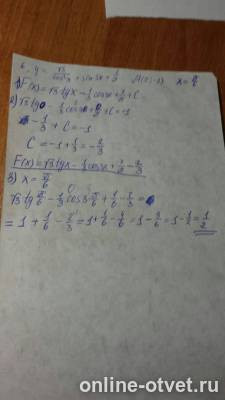 6. y = √3/cos²x + sin3x + 1/π A(0;-1) x = π/6
1) F(x) = √3 tgx - 1/3 cos3x + x/π + C
2) √3 tg0 - 1/3 cos0 + 0/π + C = -1
- 1/3 + C = -1
C = -1 + 1/3 = - 2/3
F(x) = √3 tgx - 1/3 cos3x + x/π - 2/3
3) x = π/6
√3 tg π/6 - 1/3 cos3 π/6 + 1/6 - 2/3 =
= 1 + 1/6 - 2/3 = 1 + 1/6 - 4/6 = 1 - 3/6 = 1 - 1/2 = 1/2
online-otvet.ru